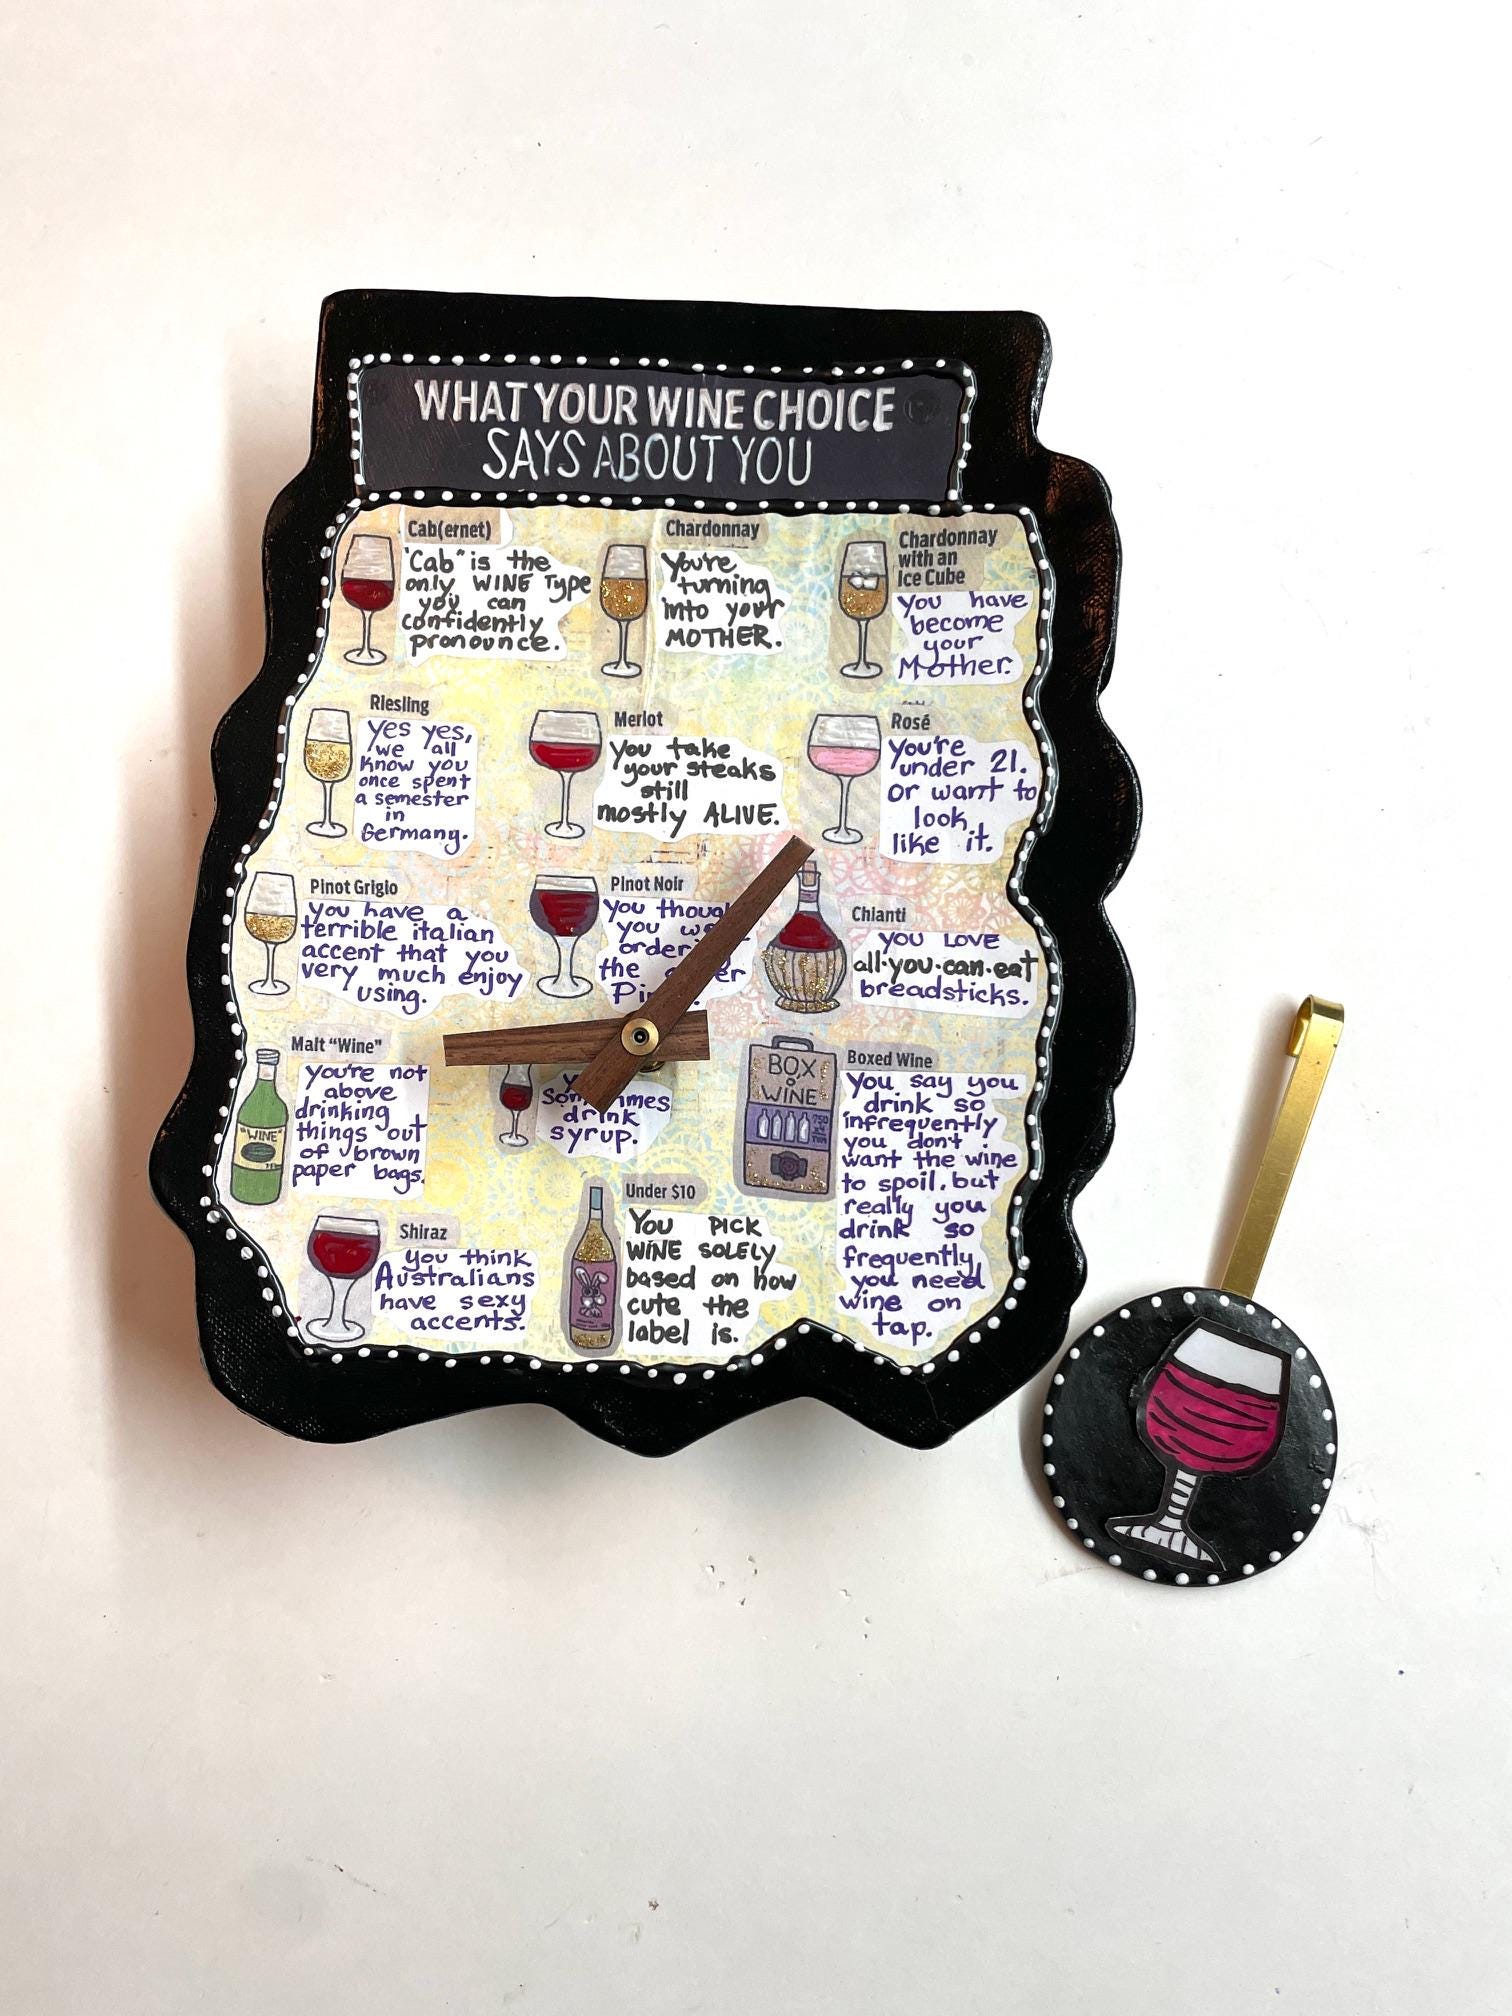 WHAT YOUR WINE CHOICE
SAYS ABOUT YOU
Cab(ernet)
"Cab" is the
only WINE Type
you can
confidently
pronounce.
Chardonnay
You're
turning
into your
MOTHER.
Chardonnay
with an
Ice Cube
You have
become
your
Mother.
Riesling
Yes yes,
we all
know you
once spent
a semester
in
Germany.
Merlot
You take
your steaks
still
mostly ALIVE.
Rosé
You're
under 21.
or want to
look
like it.
Pinot Grigio
You have a
terrible italian
accent that you
very much enjoy
using.
Pinot Noir
You
you
the
Chianti
you LOVE
all·you·can·eat
breadsticks.
Malt "Wine"
You're not
above
drinking
things out
of brown
paper bags.
"WINE"
drink
syrup.
BOX
O
WINE
Boxed Wine
You say you
drink so
infrequently
you don't
want the wine
to spoil. but
really you
drink so
frequently
you need
wine on
tap.
Shiraz
you think
Australians
have sexy
accents.
Under $10
You PICK
WINE SOLELY
based on how
cute the
label is.